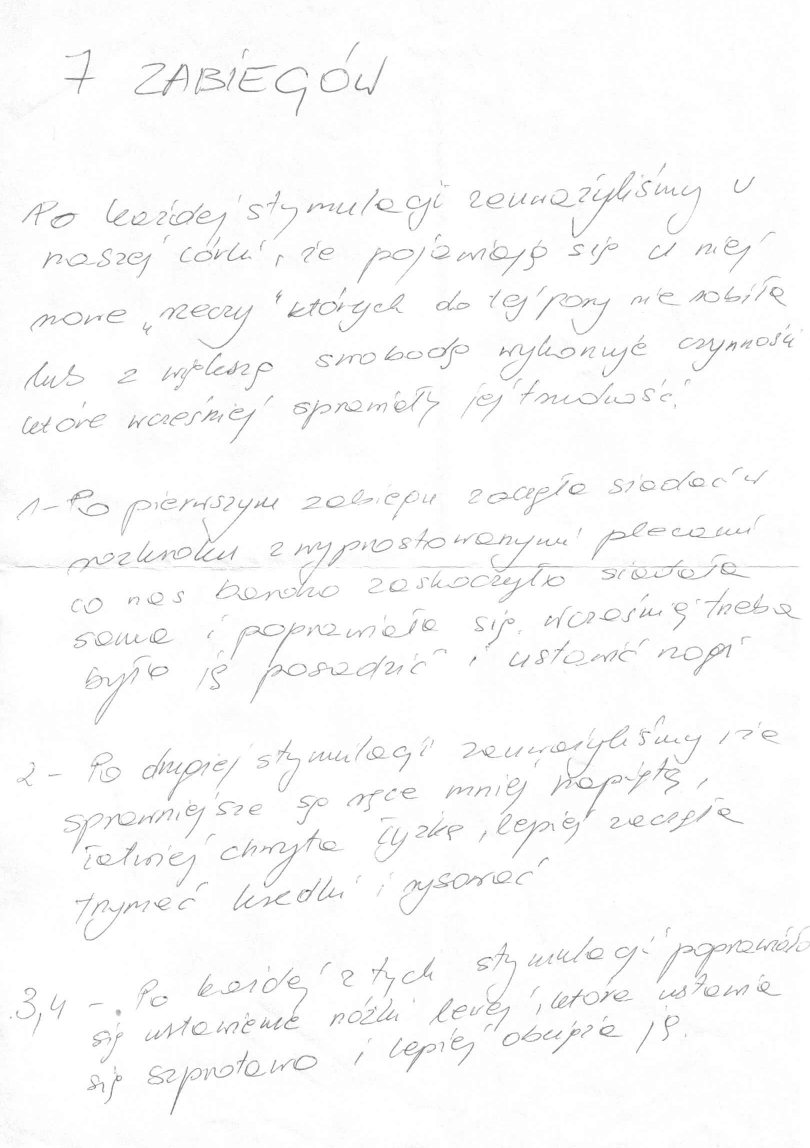 7 ZABIEGÓW
Po każdej stymulacji zauważyliśmy u
naszej córki, że pojawiają się u niej
nowe „rzeczy" których do tej pory nie robiła
lub z większą swobodą wykonuje czynności
które wcześniej sprawiały jej trudność.
1 - Po pierwszym zabiegu zaczęła siadać w
rozkroku z wyprostowanymi plecami
co nas bardzo zaskoczyło siadała
sama i poprawiała się. Wcześniej trzeba
było ją posadzić i ustawić nogi
2 - Po drugiej stymulacji zauważyliśmy, że
sprawniejsze są ręce mniej napięte,
łatwiej chwyta łyżkę, lepiej zaczęła
trzymać kredki i rysować
3,4 - Po każdej z tych stymulacji poprawiało
się ustawienie nóżki lewej, która ustawia
się szpotawo i lepiej obciąża ją.